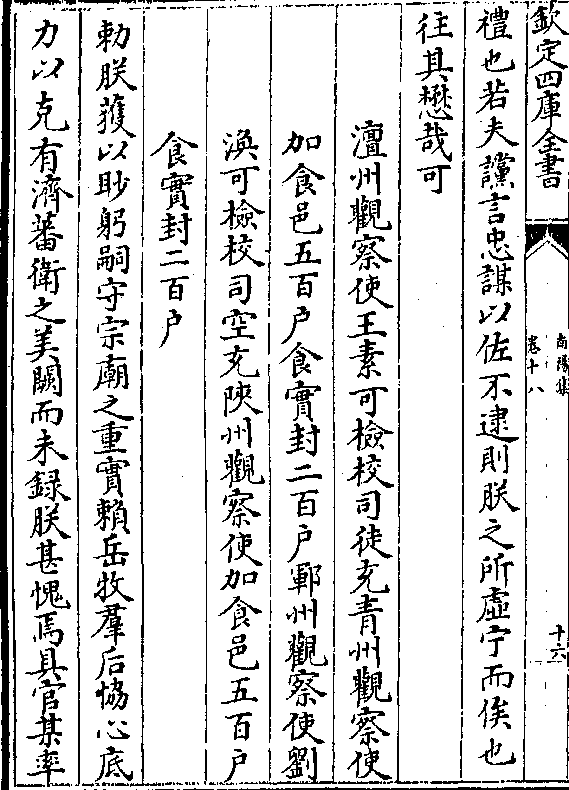 欽定四庫全書
南陽集
卷十八
十六
禮也若夫讜言忠謀以佐不逮則朕之所虛宁而俟也
往其懋哉可
澶州觀察使王素可檢校司徒充青州觀察使
加食邑五百户食實封二百户鄆州觀察使劉
渙可檢校司空充陜州觀察使加食邑五百户
食實封二百户
勅朕獲以眇躬嗣守宗廟之重實賴岳牧羣后協心底
力以克有濟蕃衛之美闕而未録朕甚愧焉具官某率